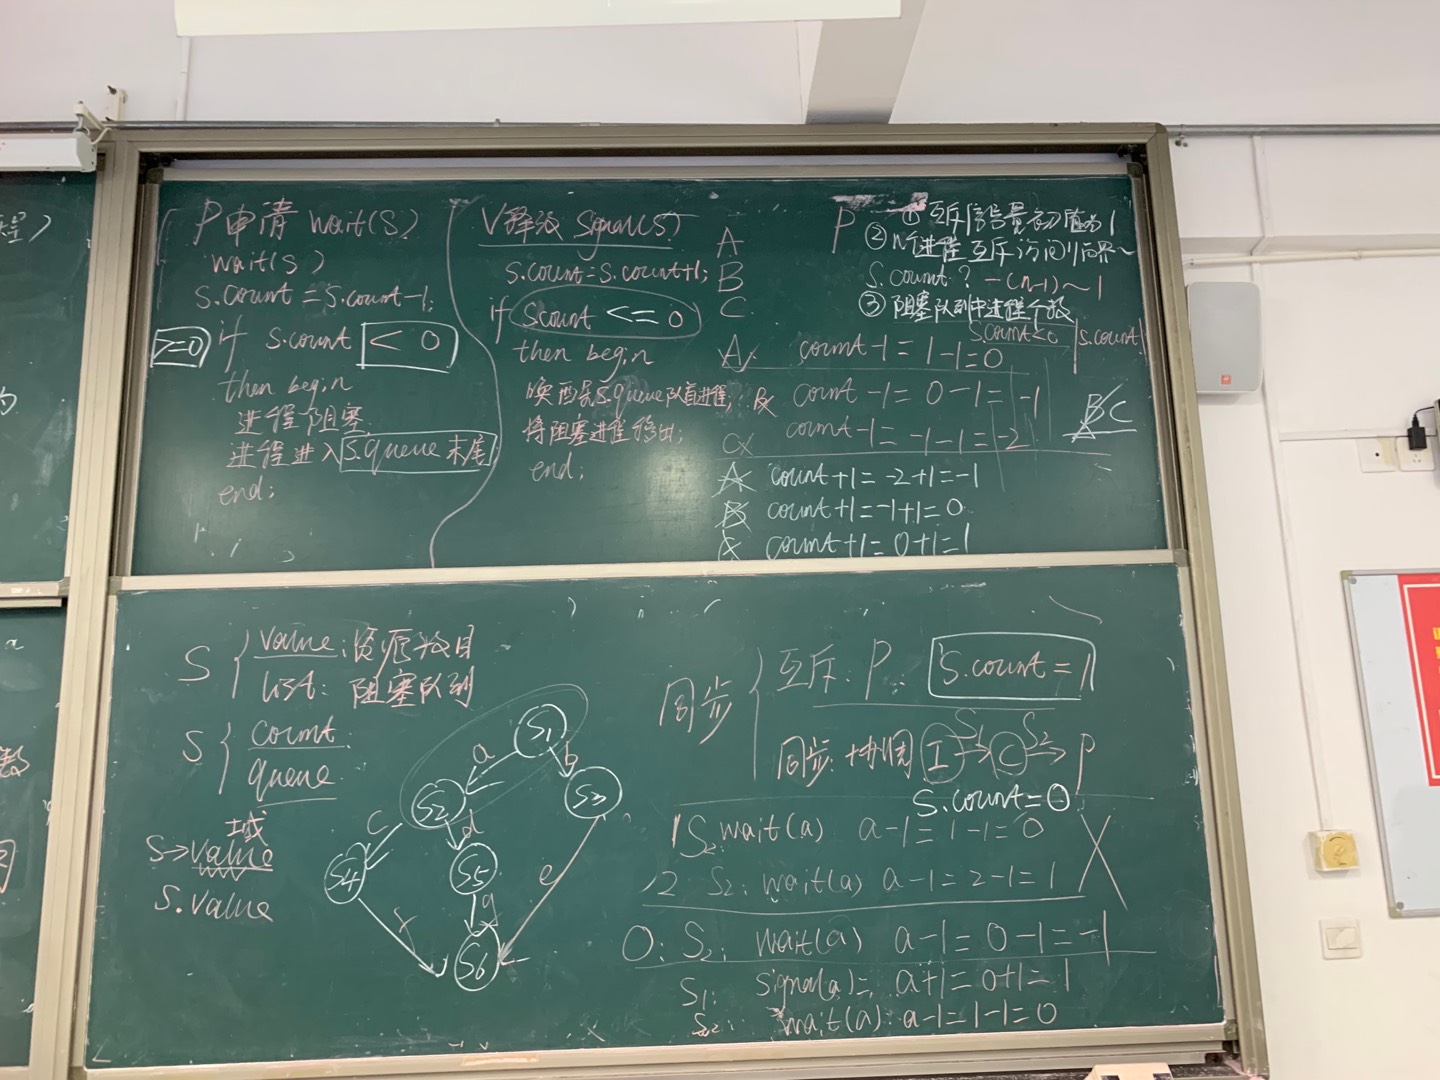 P申请 wait(S)
wait(s)
S.count = S.count-1;
>=0 if S.count < 0
then begin
进程阻塞
进程进入 S.queue 末尾
end;
V释放 Signal(S)
S.count = S.count+1;
if S.count <= 0
then begin
唤醒 S.queue 队首进程;
将阻塞进程移出;
end;
A
B
C
P ① 互斥信号量初值为1
② n个进程互斥访问临界~
S.count? -(n-1)~1
③ 阻塞队列中进程个数
S.count<0 |S.count|
A count-1=1-1=0
B count-1=0-1=-1
C count-1=-1-1=-2
BC
A count+1=-2+1=-1
B count+1=-1+1=0
C count+1=0+1=1
S { value: 资源数目
list: 阻塞队列
S { count
queue
域
S→value
S.value
S1
a b
S2 S3
c d
S4 S5 e
f g
S6
同步 { 互斥: P: S.count=1
同步: 协同 I S1→ C S2→ P
S.count=0
1 S2: wait(a) a-1=1-1=0
2 S2: wait(a) a-1=2-1=1
0: S2: wait(a) a-1=0-1=-1
S1: signal(a): a+1=0+1=1
S2: wait(a): a-1=1-1=0